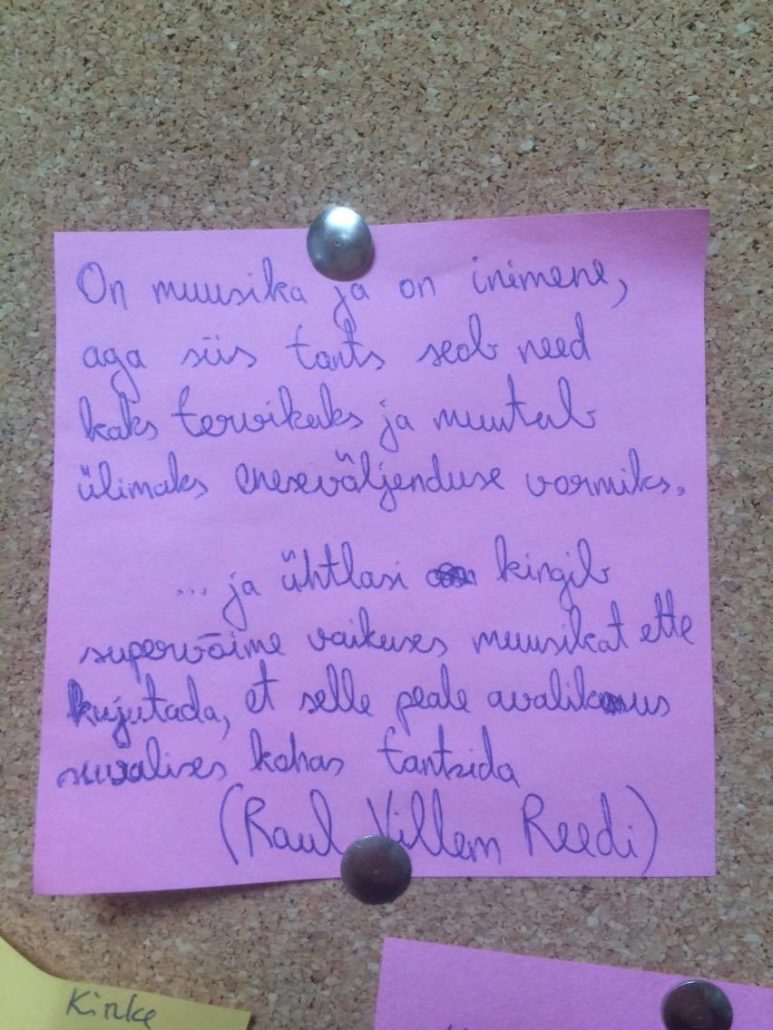 On muusika ja on inimene,
aga siis tants seob need
kaks tervikuks ja muutub
ülimaks eneseväljenduse vormiks.
... ja ühtlasi kingib
supervõime vaikuses muusikat ette
kujutada, et selle peale avalikus
suvalises kohas tantsida
(Raul Villem Reedi)
Kinke